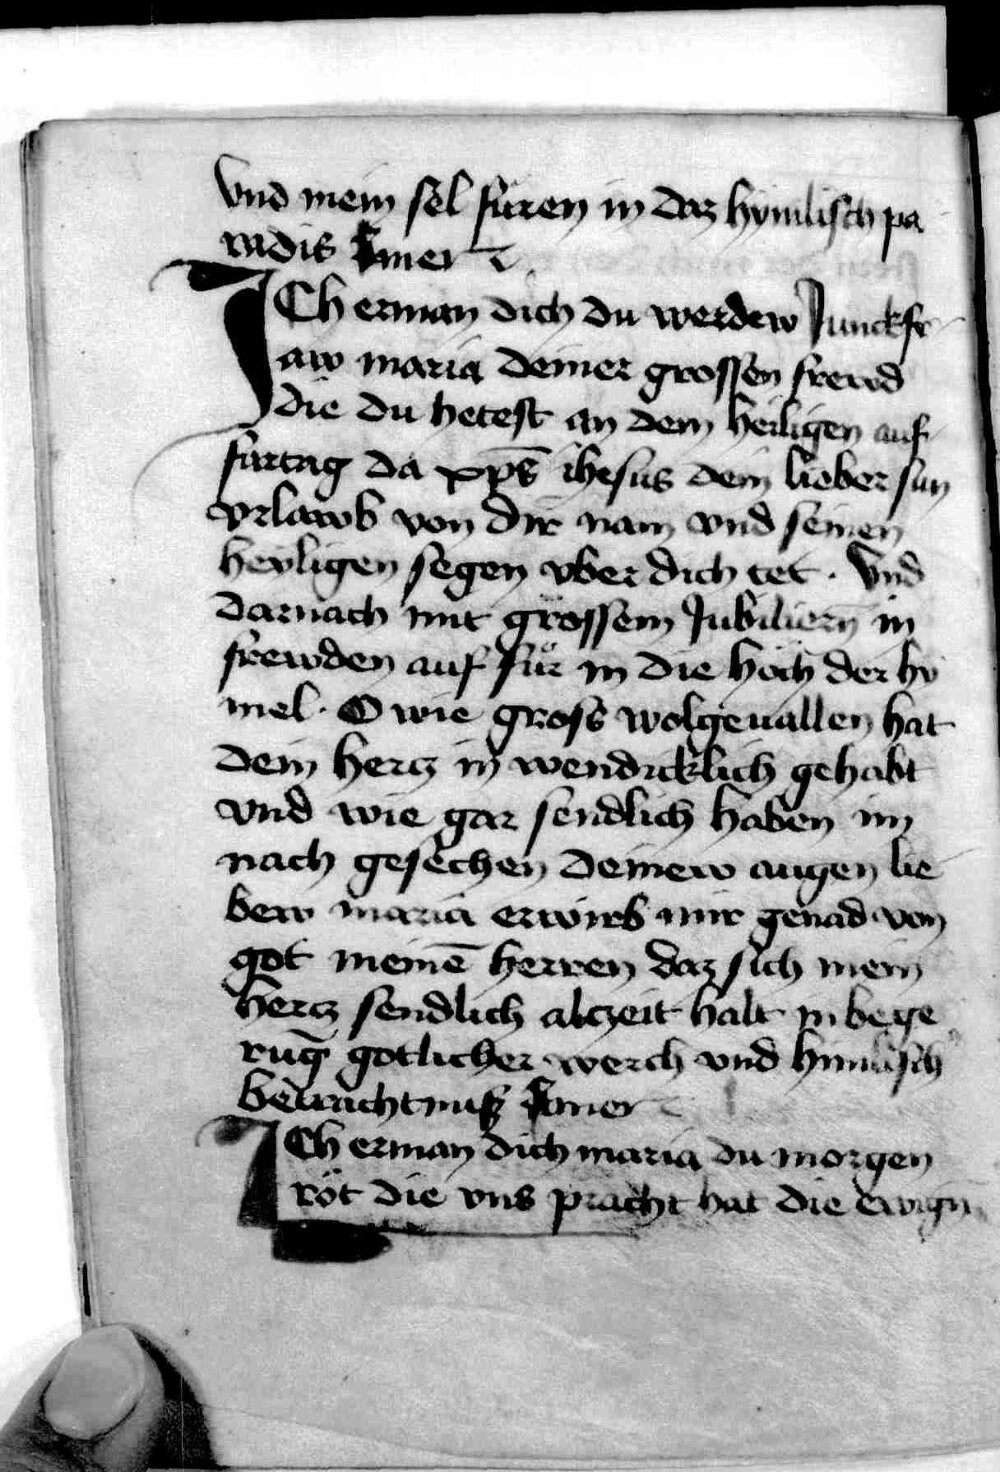 vnd mein sel füren in daz hymlisch pa
radis Amen
ICh erman dich du werdew Junckfr
aw maria deiner grossen frewd
die du hetest an dem heiligen auf
fartag da xp̄s ihesus dein lieber sun
vrlawb von dir nam vnd seinen
heyligen segen vber dich tet · Vnd
darnach mit grossem Jubiliern̄ in
frewden auf für in die höch der hy
mel · O wie gross wolgeuallen hat
dein hercz in wendicklich gehabt
vnd wie gar sendlich haben im
nach gesechen deinew augen lie
bew maria erwirb mir genad von
got meinē herren daz sich mein
hercz sendlich alczeit halt in bege
rūg gotlicher werch vnd himlisch
betrachtnuß Amen
ICh erman dich maria du morgen
röt die vns pracht hat die ewign